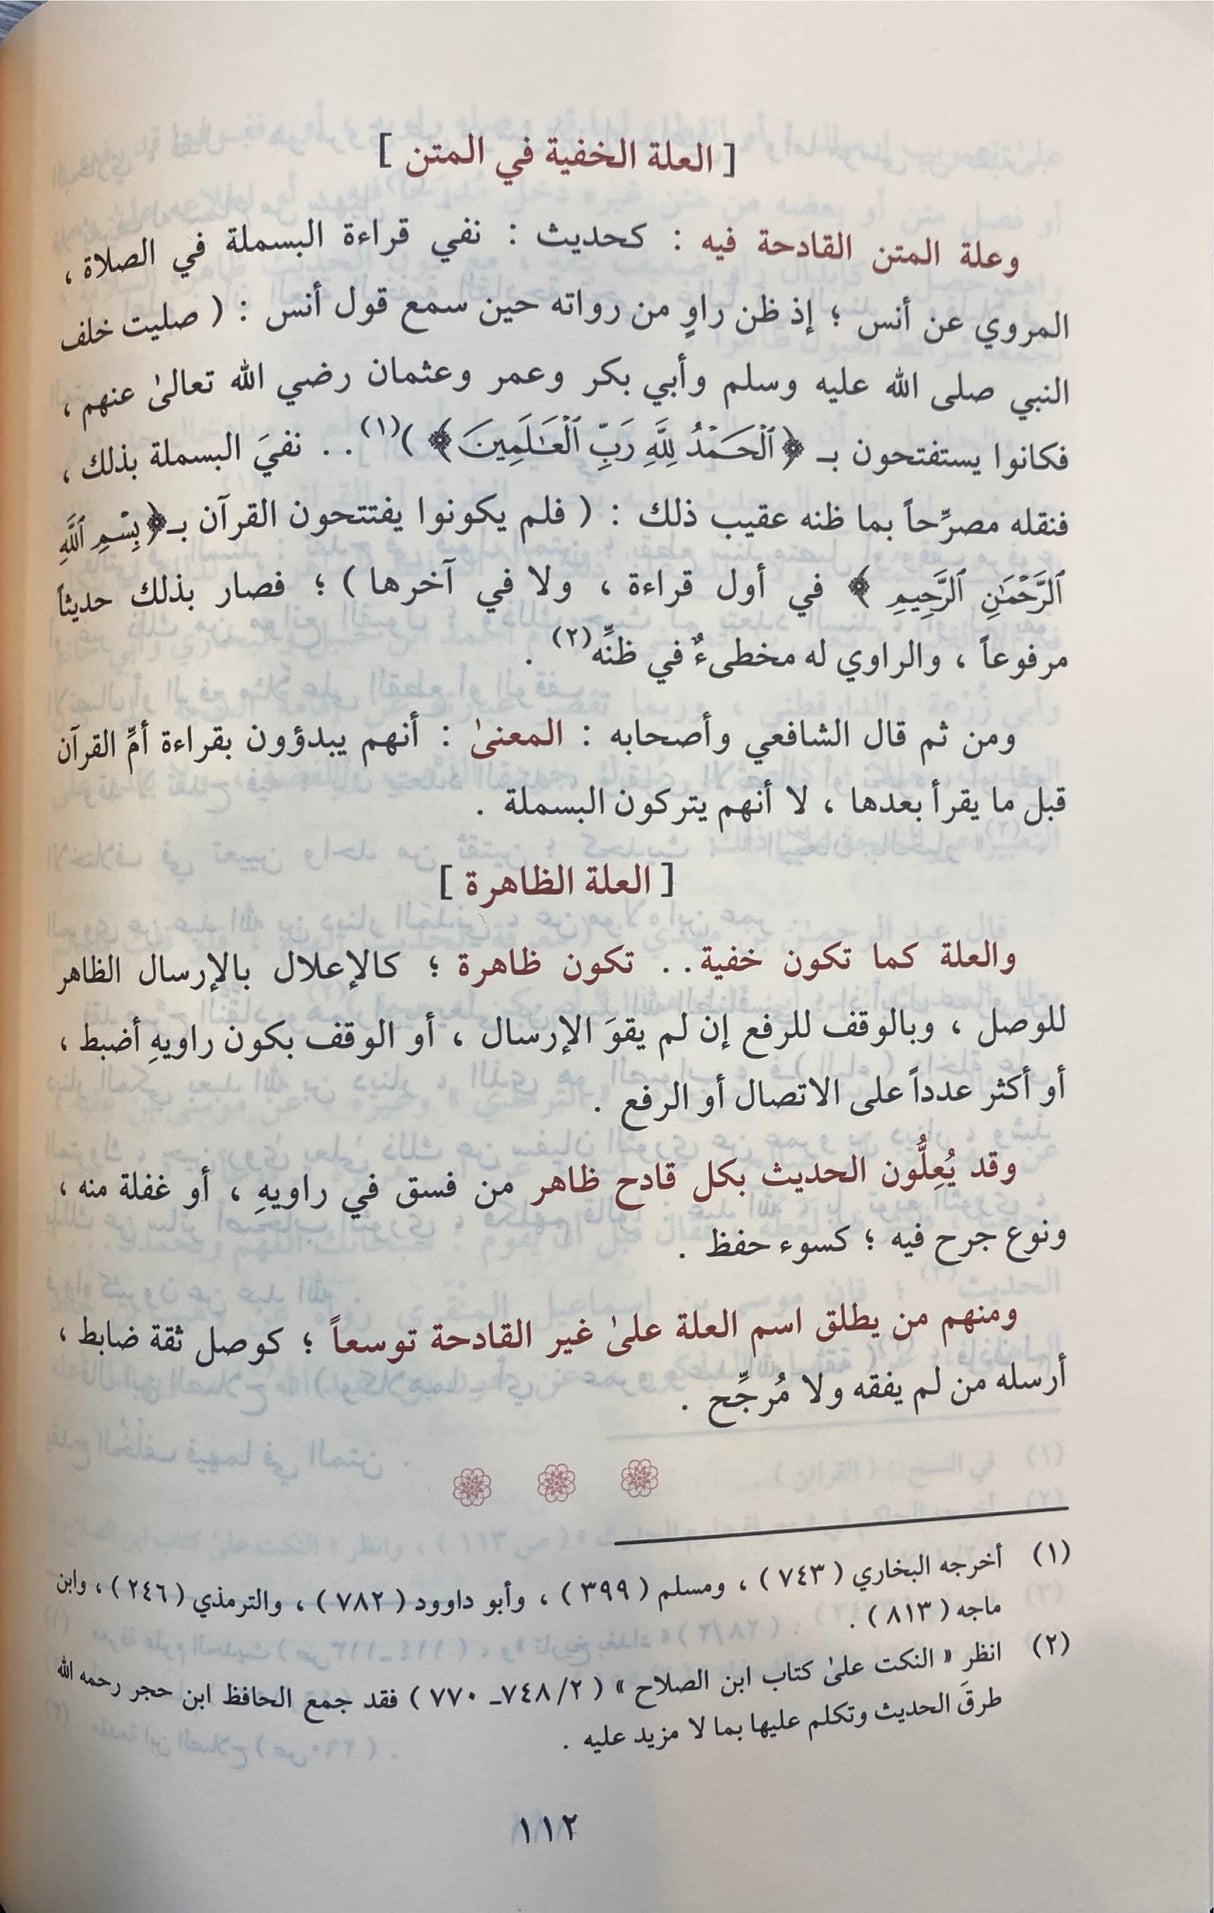 [ العلة الخفية في المتن ]
وعلة المتن القادحة فيه : كحديث : نفي قراءة البسملة في الصلاة ،
المروي عن أنس ؛ إذ ظن راوٍ من رواته حين سمع قول أنس : ( صليت خلف
النبي صلى الله عليه وسلم وأبي بكر وعمر وعثمان رضي الله تعالىٰ عنهم ،
فكانوا يستفتحون بـ ﴿ ٱلْحَمْدُ لِلَّهِ رَبِّ ٱلْعَٰلَمِينَ ﴾ )(١) . . نفيَ البسملة بذلك ،
فنقله مصرِّحاً بما ظنه عقيب ذلك : ( فلم يكونوا يفتتحون القرآن بـ﴿ بِسْمِ ٱللَّهِ
ٱلرَّحْمَٰنِ ٱلرَّحِيمِ ﴾ في أول قراءة ، ولا في آخرها ) ؛ فصار بذلك حديثاً
مرفوعاً ، والراوي له مخطىءٌ في ظنِّه(٢) .
ومن ثم قال الشافعي وأصحابه : المعنىٰ : أنهم يبدؤون بقراءة أمِّ القرآن
قبل ما يقرأ بعدها ، لا أنهم يتركون البسملة .
[ العلة الظاهرة ]
والعلة كما تكون خفية . . تكون ظاهرة ؛ كالإعلال بالإرسال الظاهر
للوصل ، وبالوقف للرفع إن لم يقوَ الإرسال ، أو الوقف بكون راويهِ أضبط ،
أو أكثر عدداً على الاتصال أو الرفع .
وقد يُعِلُّون الحديث بكل قادح ظاهر من فسق في راويهِ ، أو غفلة منه ،
ونوع جرح فيه ؛ كسوء حفظ .
ومنهم من يطلق اسم العلة علىٰ غير القادحة توسعاً ؛ كوصل ثقة ضابط ،
أرسله من لم يفقه ولا مُرجِّح .
(١) أخرجه البخاري ( ٧٤٣ ) ، ومسلم ( ٣٩٩ ) ، وأبو داوود ( ٧٨٢ ) ، والترمذي ( ٢٤٦ ) ، وابن
ماجه ( ٨١٣ ) .
(٢) انظر « النكت علىٰ كتاب ابن الصلاح » ( ٢/ ٧٤٨ـ ٧٧٠ ) فقد جمع الحافظ ابن حجر رحمه الله
طرقَ الحديث وتكلم عليها بما لا مزيد عليه .
١١٢